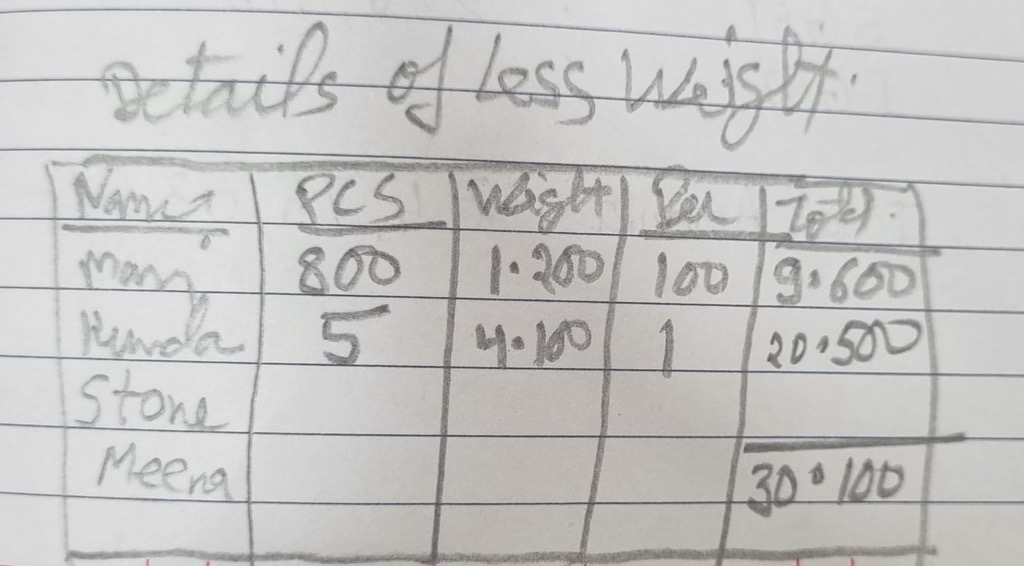 Details of Less Weight.
Name PCS Weight Per Total.
Moni 800 1.200 100 9.600
Kunda 5 4.100 1 20.500
Stone
Meena 30.100